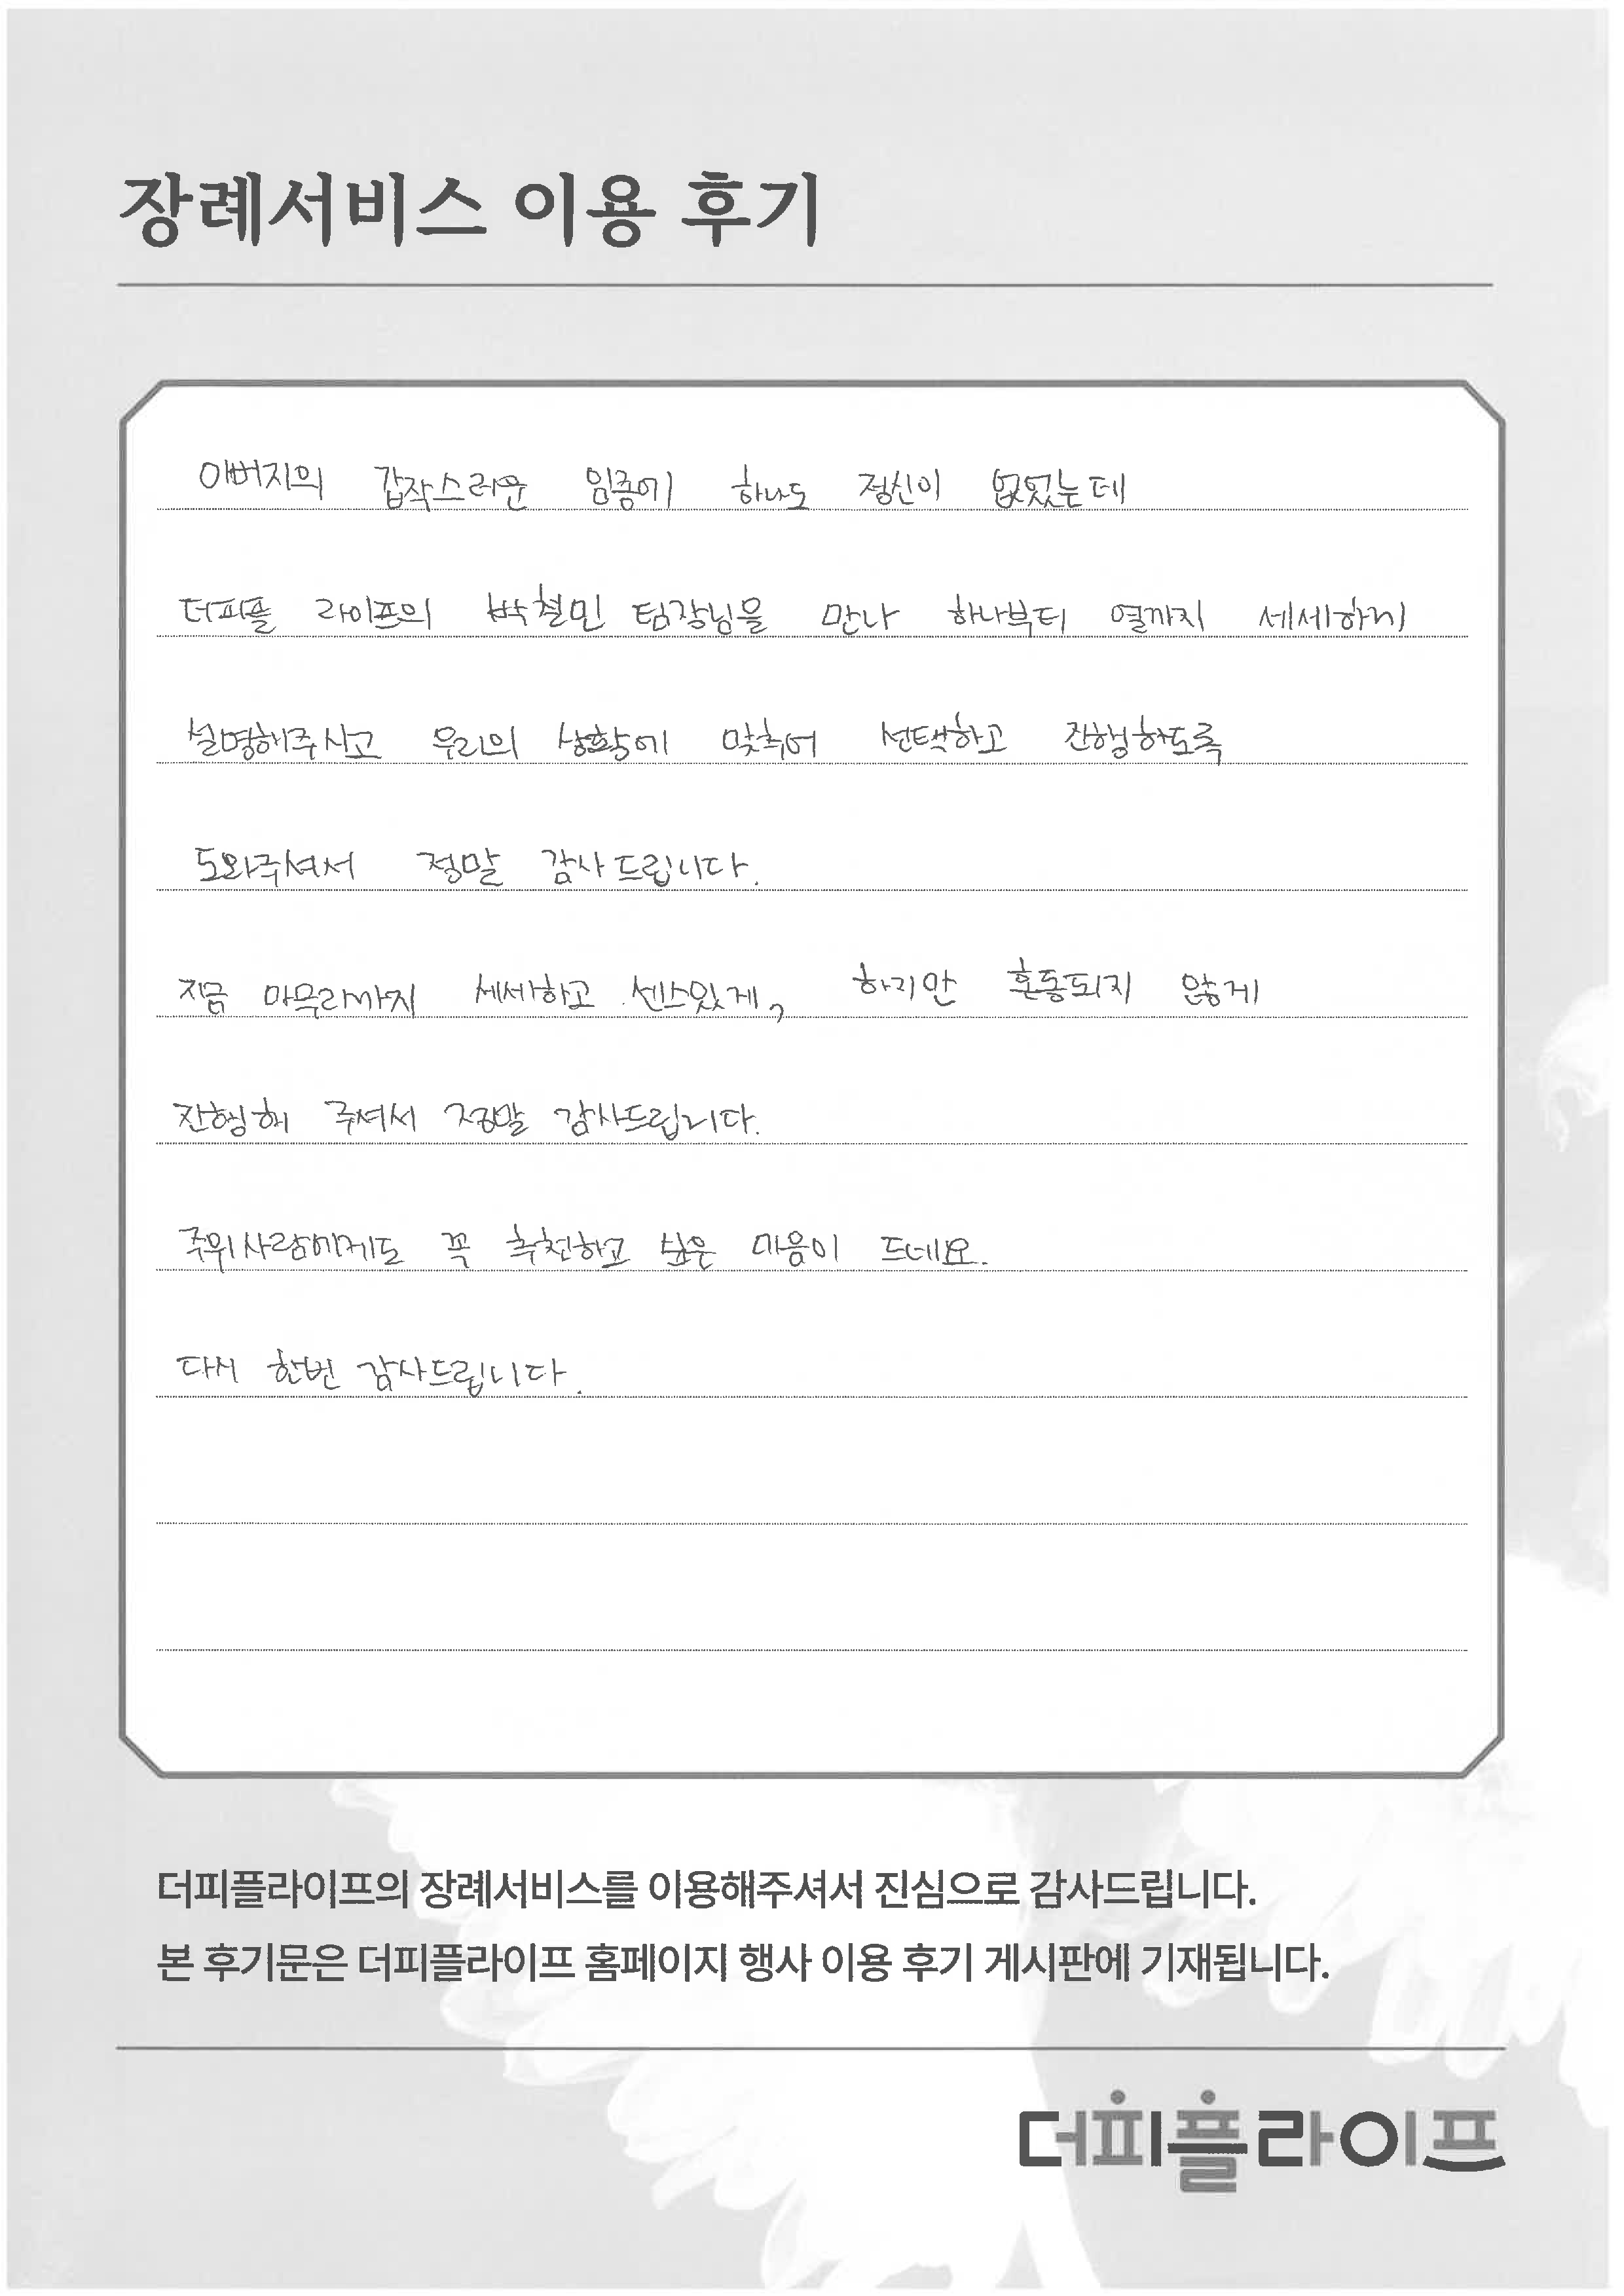 장례서비스 이용 후기
아버지의 갑작스러운 임종에 하나도 정신이 없었는데
더피플 라이프의 박철민 팀장님을 만나 하나부터 열까지 세세하게
설명해주시고 우리의 상황에 맞추어 선택하고 진행하도록
도와주셔서 정말 감사드립니다.
지금 마무리까지 세세하고 센스있게, 하지만 혼동되지 않게
진행해 주셔서 정말 감사드립니다.
주위사람에게도 꼭 추천하고 싶은 마음이 드네요.
다시 한번 감사드립니다.
더피플라이프의 장례서비스를 이용해주셔서 진심으로 감사드립니다.
본 후기문은 더피플라이프 홈페이지 행사 이용 후기 게시판에 기재됩니다.
더피플라이프